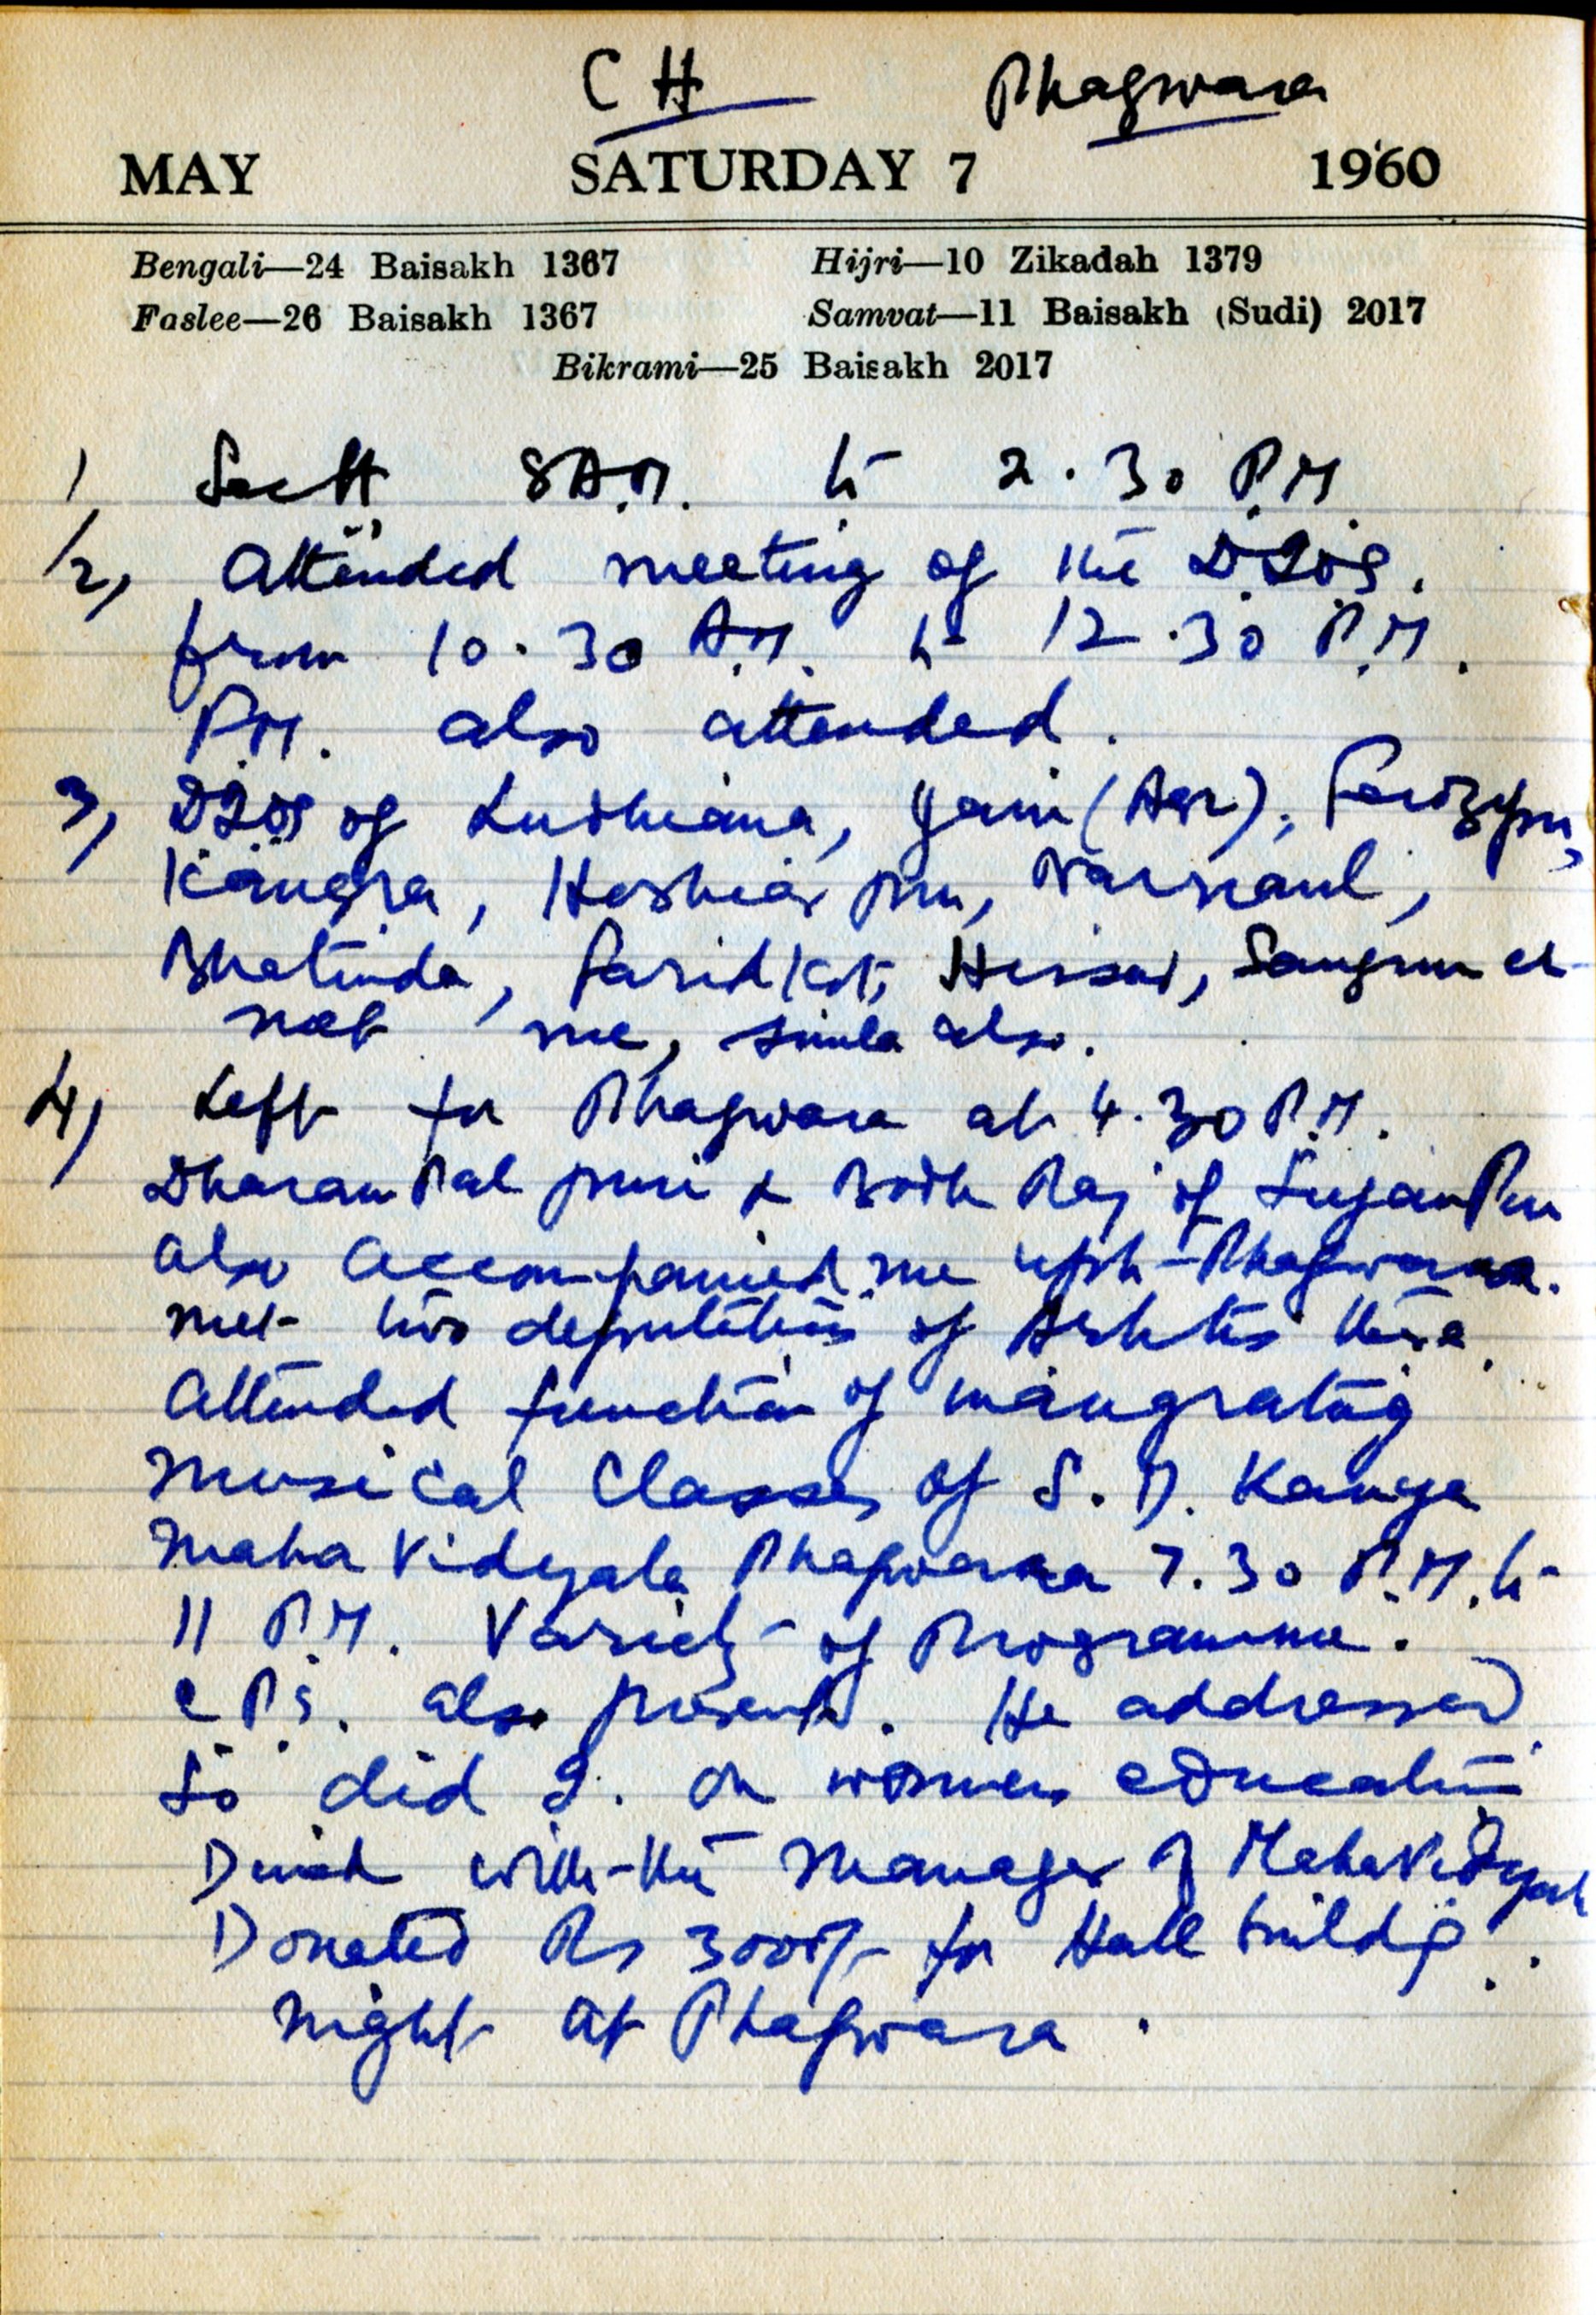 CH Phagwara
MAY SATURDAY 7 1960
Bengali—24 Baisakh 1367 Hijri—10 Zikadah 1379
Faslee—26 Baisakh 1367 Samvat—11 Baisakh (Sudi) 2017
Bikrami—25 Baisakh 2017
1, Sectt 8 A.M. to 2.30 P.M.
2, Attended meeting of the
from 10.30 A.M. to 12.30 P.M.
P.M. also attended.
3, of Ludhiana, (Asr), Ferozepur,
Kangra, Hoshiarpur, Narnaul,
Bhatinda, Faridkot, Hissar, Sangrur
met me, Simla also.
4, Left for Phagwara at 4.30 P.M.
Dharam Pal Puri & Bodh Raj of SujanPur
also accompanied me upto Phagwara.
met two deputations of there.
Attended function of
musical classes of S. D. Kanya
Maha Vidyala Phagwara 7.30 P.M. to
11 P.M. Variety of Programme.
C.P.S. also present. He addressed
So did I. on women education
with the manager of MahaVidyala
Donated Rs 3000/- for Hall buildg.
Night at Phagwara.